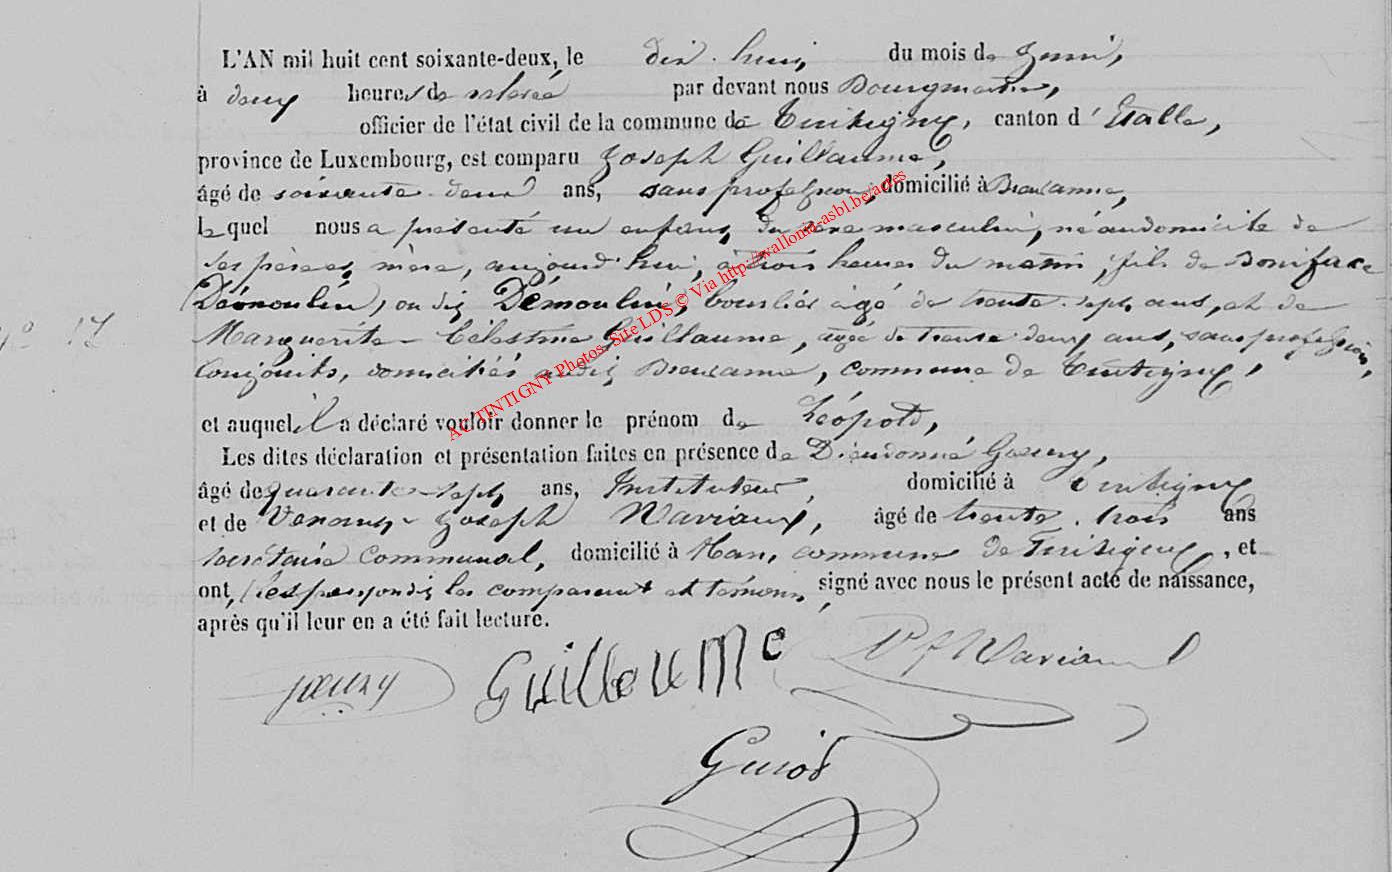 L'AN mil huit cent soixante-deux, le dix huit, du mois de Juin,
à deux heures de relevée par devant nous Bourgmestre,
officier de l'état civil de la commune de Tintigny, canton d'Etalle,
province de Luxembourg, est comparu Joseph Guillaume,
âgé de soixante deux ans, sans profession, domicilié à Breuvanne,
lequel nous a présenté un enfant, du sexe masculin, né au domicile de
ses père et mère, aujourd'hui, à trois heures du matin, fils de Boniface
(Démoulin) ou dit Démoulin, âgé de trente sept ans, et de
Marguerite Célestine Guillaume, âgée de trente deux ans, sans profession,
Conjoints, domiciliés audit Breuvanne, commune de Tintigny,
N° 17
et auquel il a déclaré vouloir donner le prénom de Léopold,
Les dites déclaration et présentation faites en présence de Dieudonné Goury,
âgé de quarante sept ans, Instituteur, domicilié à Tintigny
et de Joseph Naviaux, âgé de trente trois ans
secrétaire communal, domicilié à Han, commune de Tintigny, et
ont, les comparant et témoins, signé avec nous le présent acte de naissance,
après qu'il leur en a été fait lecture.
Goury Guillaume V J Naviaux
Guiot
ACTINTIGNY Photos Site LDS © Via http://wallonia-asbl.be/actes